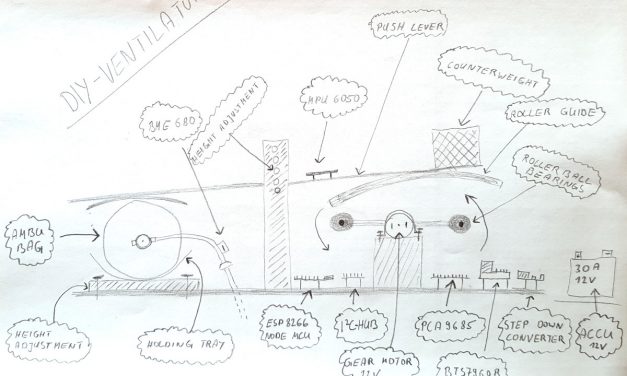 DIY-VENTILATOR
PUSH LEVER
COUNTERWEIGHT
BME 680
HEIGHT ADJUSTMENT
MPU 6050
ROLLER GUIDE
ROLLER BALL
BEARINGS
AMBU
BAG
30A
12V
HEIGHT
ADJUSTMENT
HOLDING TRAY
ESP8266
NODE MCU
I²C-HUB
GEAR MOTOR
12V
PCA9685
BTS7960B
STEP DOWN
CONVERTER
ACCU
12V